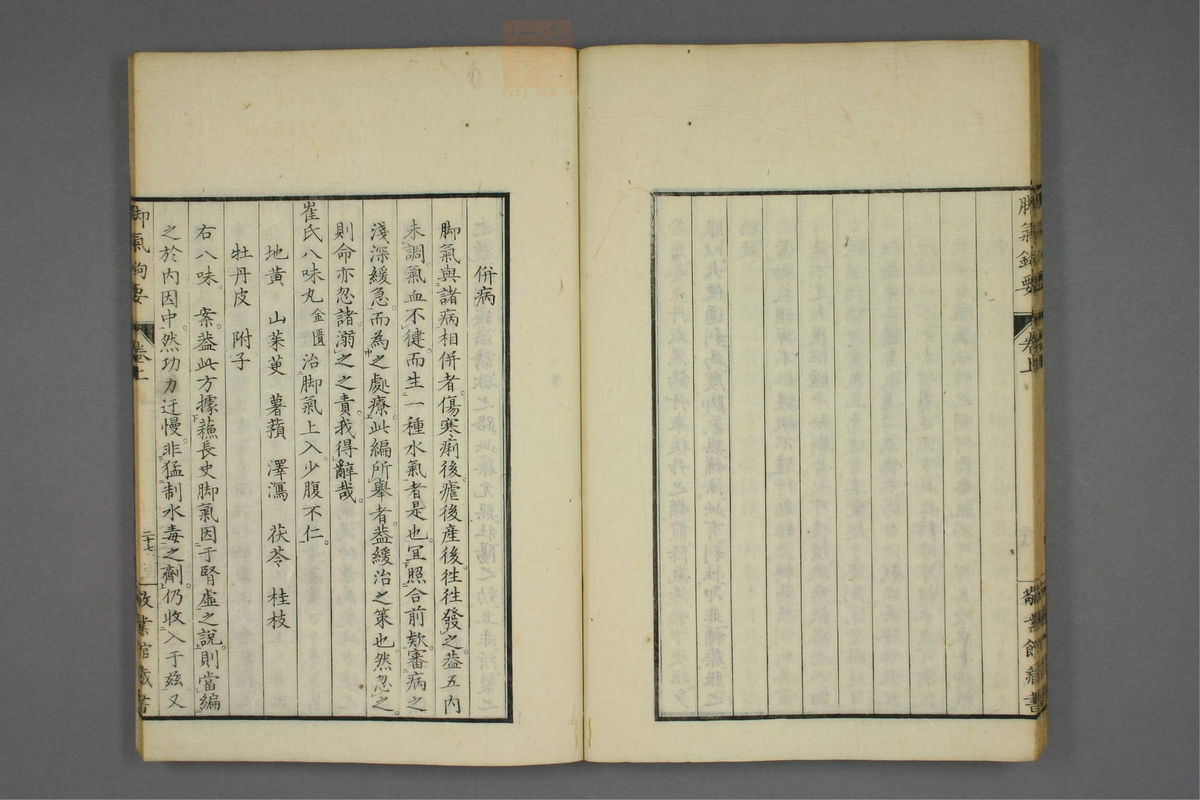 脚氣鉤要
卷上
敬業館藏書
併病
脚氣與諸病相併者傷寒痢後瘧後産後徃徃發之葢五内
未調氣血不健而生一種水氣者是也宜照合前欵審病之
淺深緩急而為之處療此編所舉者葢緩治之策也然忽之
則命亦忽諸溺之之責我得辭哉
崔氏八味丸金匱治脚氣上入少腹不仁
地黄 山茱萸 薯蕷 澤瀉 茯苓 桂枝
牡丹皮 附子
右八味 案葢此方據蘓長史脚氣因于腎虛之說則當編
之於内因中然功力迂慢非猛制水毒之劑仍收入于玆又
脚氣鉤要
卷上
二十七
敬業館藏書